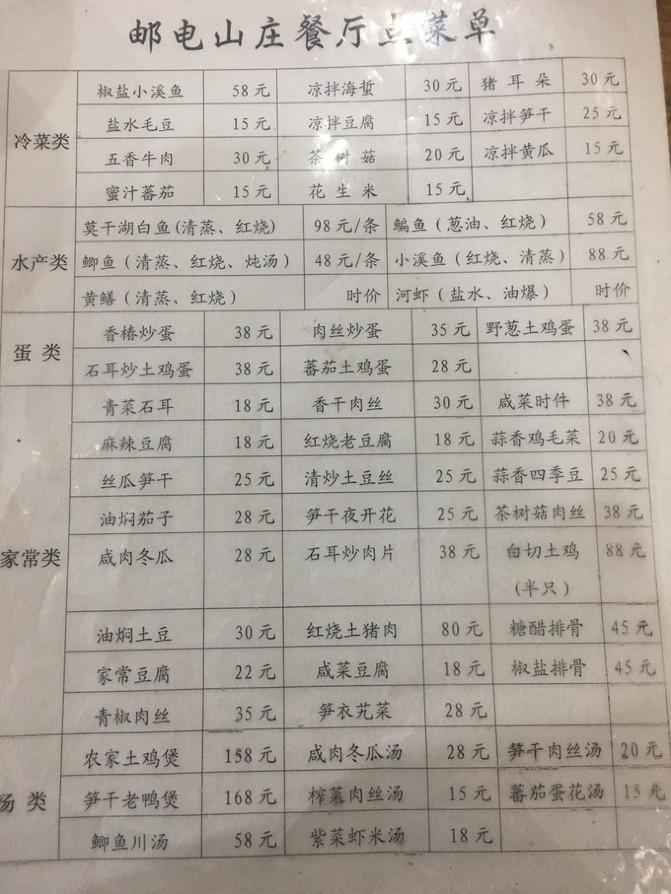 邮电山庄餐厅点菜单
冷菜类
椒盐小溪鱼 58元 凉拌海蜇 30元 猪耳朵 30元
盐水毛豆 15元 凉拌豆腐 15元 凉拌笋干 25元
五香牛肉 30元 茶树菇 20元 凉拌黄瓜 15元
蜜汁蕃茄 15元 花生米 15元
水产类
莫干湖白鱼(清蒸、红烧) 98元/条 鳊鱼(葱油、红烧) 58元
鲫鱼(清蒸、红烧、炖汤) 48元/条 小溪鱼(红烧、清蒸) 88元
黄鳝(清蒸、红烧) 时价 河虾(盐水、油爆) 时价
蛋类
香椿炒蛋 38元 肉丝炒蛋 35元 野葱土鸡蛋 38元
石耳炒土鸡蛋 38元 蕃茄土鸡蛋 28元
家常类
青菜石耳 18元 香干肉丝 30元 咸菜时件 38元
麻辣豆腐 18元 红烧老豆腐 18元 蒜香鸡毛菜 20元
丝瓜笋干 25元 清炒土豆丝 25元 蒜香四季豆 25元
油焖茄子 28元 笋干夜开花 25元 茶树菇肉丝 38元
咸肉冬瓜 28元 石耳炒肉片 38元 白切土鸡 88元
(半只)
油焖土豆 30元 红烧土猪肉 80元 糖醋排骨 45元
家常豆腐 22元 咸菜豆腐 18元 椒盐排骨 45元
青椒肉丝 35元 笋衣芄菜 28元
汤类
农家土鸡煲 158元 咸肉冬瓜汤 28元 笋干肉丝汤 20元
笋干老鸭煲 168元 榨菜肉丝汤 15元 蕃茄蛋花汤 15元
鲫鱼川汤 58元 紫菜虾米汤 18元